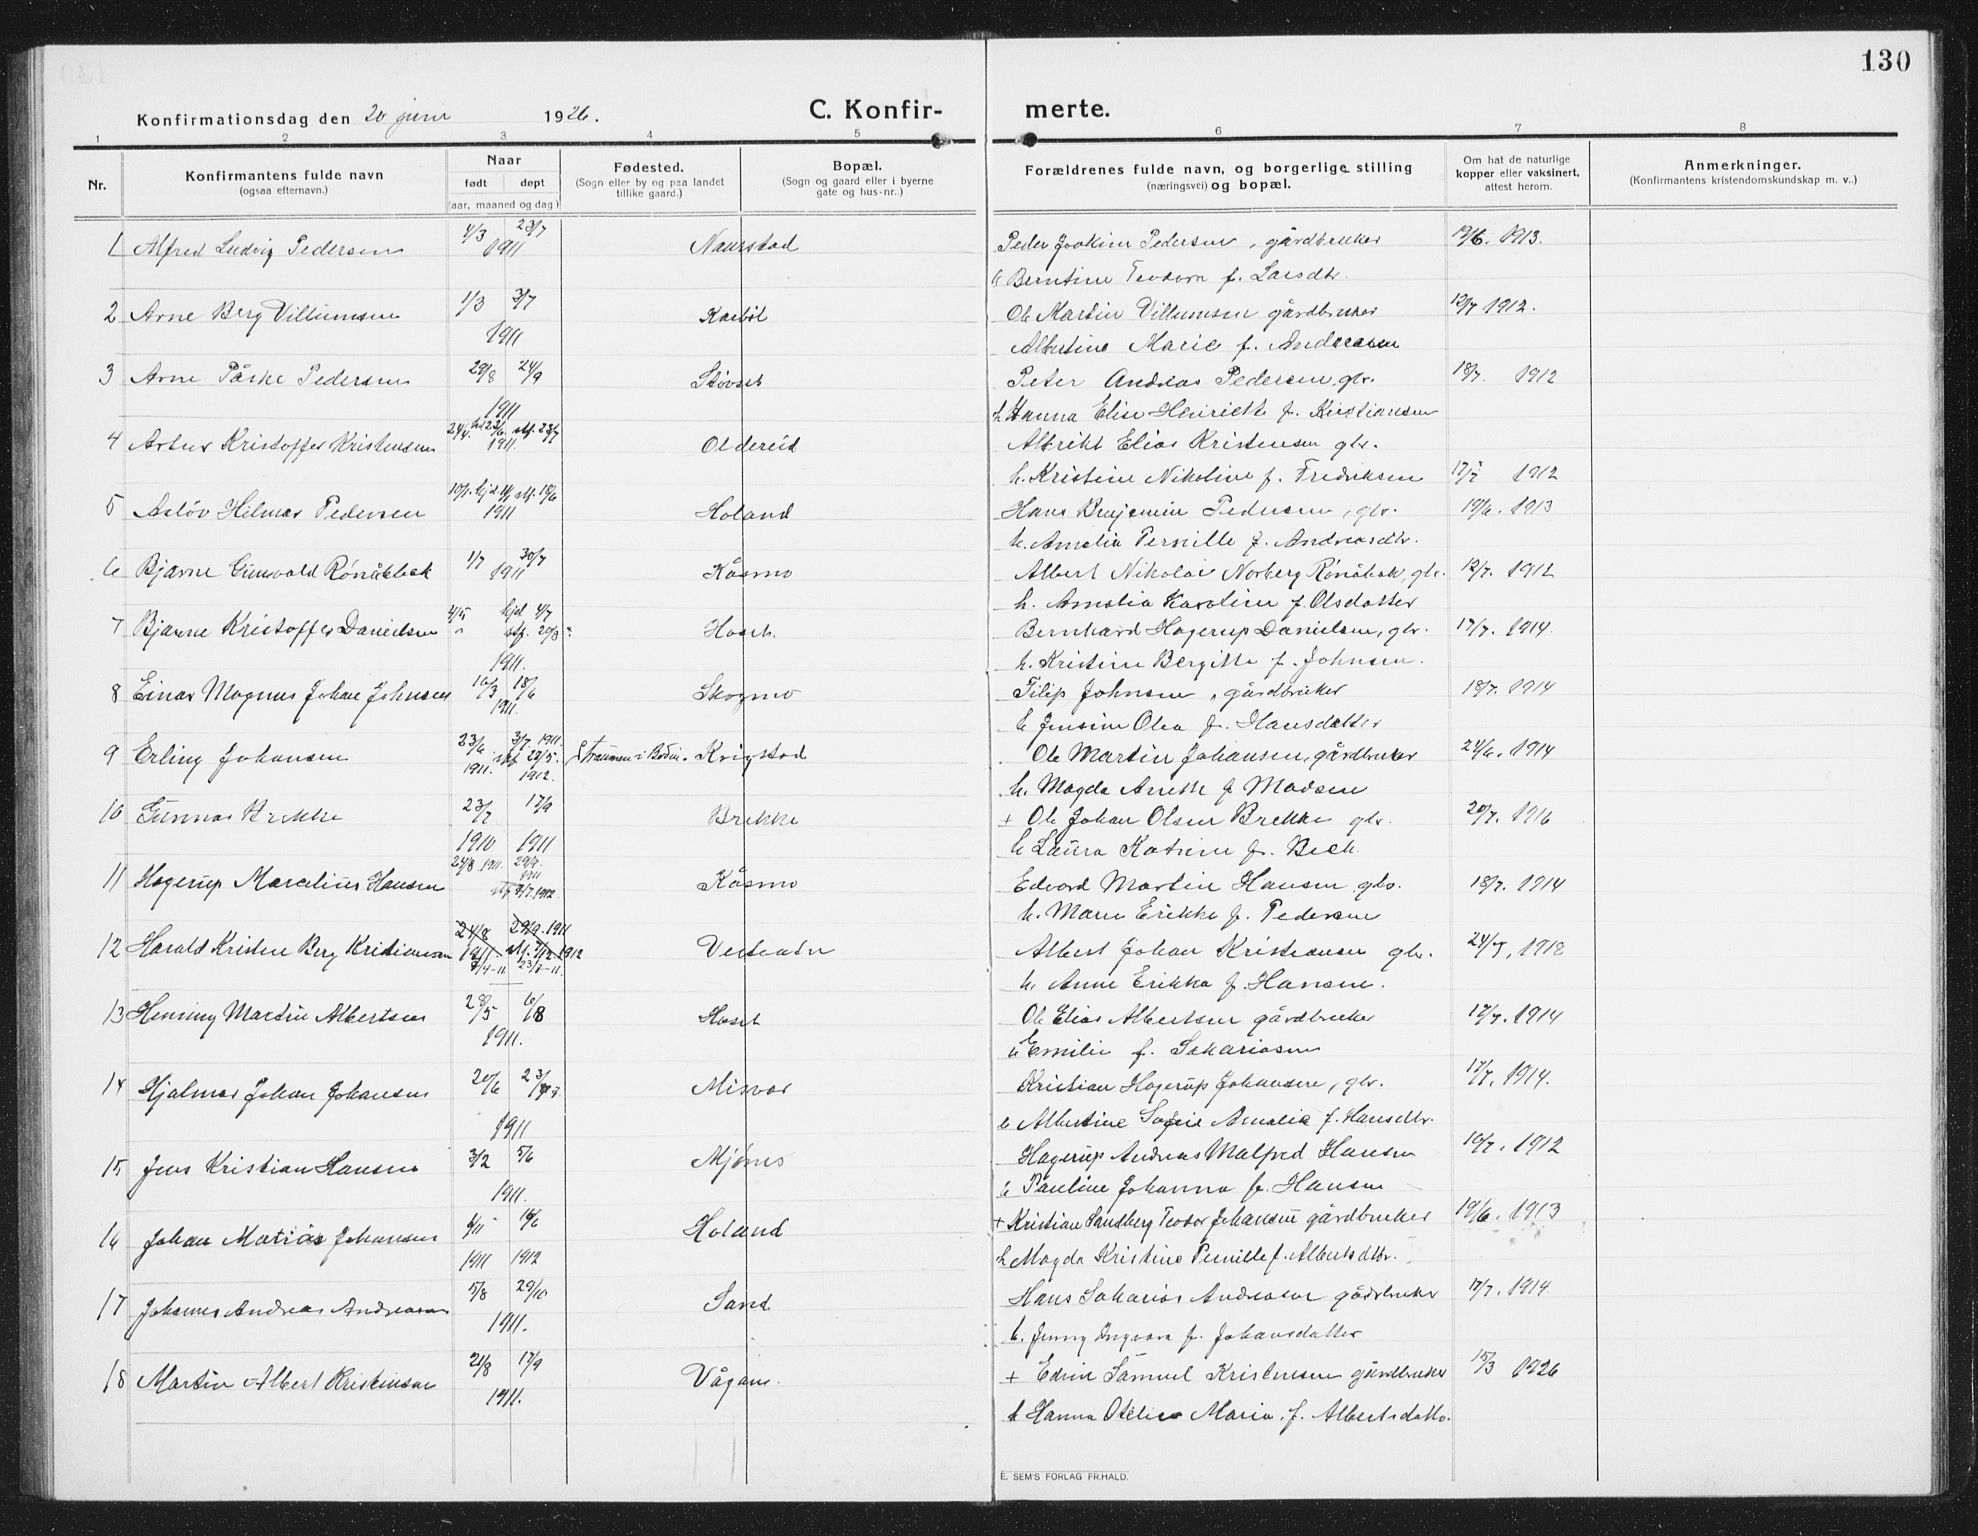 130
Konfirmationsdag den 20 juni 1926.
C. Konfir-
merte.
1 2 3 4 5 6 7 8
Nr.
Konfirmantens fulde navn
(ogsaa efternavn.)
Naar
født døpt
(aar, maaned og dag)
Fødested.
(Sogn eller by og paa landet
tillike gaard.)
Bopæl.
(Sogn og gaard eller i byerne
gate og hus-nr..)
Forældrenes fulde navn, og borgerlige stilling
(næringsvei) og bopæl.
Om hat de naturlige
kopper eller vaksinert,
attest herom.
Anmerkninger.
(Konfirmantens kristendomskundskap m. v..)
1 Alfred Ludvig Pedersen 4/3 23/7 Naurstad Peder Joakim Pedersen, gårdbruker 19/6. 1913.
1911 Berntine Teodora f. Larsdtr.
2 Arne Berg Villumsen 1/3 3/7 Karbøl Ole Martin Villumsen gårdbruker 12/7 1912.
1911 Albertine Marie f. Andreasen
3 Arne Påske Pedersen 29/8 24/9 Støvset Peter Andreas Pedersen, gbr. 18/7. 1912
1911 h. Hanna Elise Henriette f. Kristiansen
4 Artur Kristoffer Kristensen 24/4. hjd 23/6. stf. 23/7 Oldereid Albrikt Elias Kristensen gbr.
1911. h. Kristine Nikoline f. Fredriksen 17/7 1912
5 Asløv Hilmar Pedersen 10/1. hjd 14/1 stf. 18/6 Holand Hans Benjamin Pedersen, gbr. 19/6. 1913
1911 h. Amalia Pernille f. Andreasdtr.
6 Bjarne Gunvald Rønåbek 1/7 30/7 Kåsmo Albert Nikolai Norberg Rønåbek, gbr. 12/7. 1912
1911 h. Amalia Karoline f. Olsdatter
7 Bjarne Kristoffer Danielsen 4/5 hjd 4/7 stf. 20/8 Hoset. Bernhard Hagerup Danielsen, gbr. 17/7. 1914
1911. h. Kristine Bergitte f. Johnsen.
8 Einar Magnus Johan Johnsen 16/3 18/6 Skogmo Filip Johnsen, gårdbruker 18/7. 1914
1911. h Jensine Olea f. Hansdatter
9 Erling Johansen 23/6. 3/7 1911. Straumen i Bodin. Kvigstad Ole Martin Johansen, gårdbruker 24/6. 1914
1911. stf 29/5. 1912. h. Magda Anette f Madsen
10 Gunnar Brekke 23/7 17/9 Brekke + Ole Johan Olsen Brekke gbr. 20/7. 1916
1910 1911 h Laura Katrine f. Bech.
11 Hagerup Marelius Hansen 24/8 1911. 29/9. 1911 Kåsmo Edvard Martin Hansen gbr. 18/7. 1914
stf 3/7 1912. h. Marie Erikke f. Pedersen
12 Harald Kristen Berg Kristiansen 24/8 29/9. 1911 Vesteatr Albert Johan Kristiansen gbr. 24/7, 1918
1911 stf. 7/12 1912
7/4-11 23/7-11. h. Anne Erikka f. Hansen.
13 Henning Martin Albertsen 28/5 6/8 Hoset Ole Elias Albertsen gårdbruker 17/7. 1914
1911. h Emilie f. Sakariasen
14 Hjalmar Johan Johansen 20/6 23/7 Misvær Kristian Hagerup Johansen, gbr. 17/7. 1914.
1911 h Albertine Sofie Amalie f. Hansdtr.
15 Jens Kristian Hansen 3/2 5/6 Mjønes Hagerup Andreas Malfred Hansen 10/7. 1912
1911. h Pauline Johanna f. Hansen
16 Johan Matias Johansen 6/11 16/6 Holand + Kristian Sandberg Teodor Johansen gårdbruker 19/6. 1913
1911 1912 h Magda Kristine Pernille f. Albertsdtr.
17 Johannes Andreas Andreasen 5/8 29/10 Sand Hans Sakarias Andreasen gårdbruker 17/7. 1914
1911. h. Jenny Ingvara f. Johansdatter
18 Martin Albert Kristensen 21/8 17/9 Vågan. + Edvin Samuel Kristensen gårdbruker 15/3 1926
1911. h Hanna Otelie Maria f. Albertsdatter.
E. SEM'S FORLAG FR.HALD.